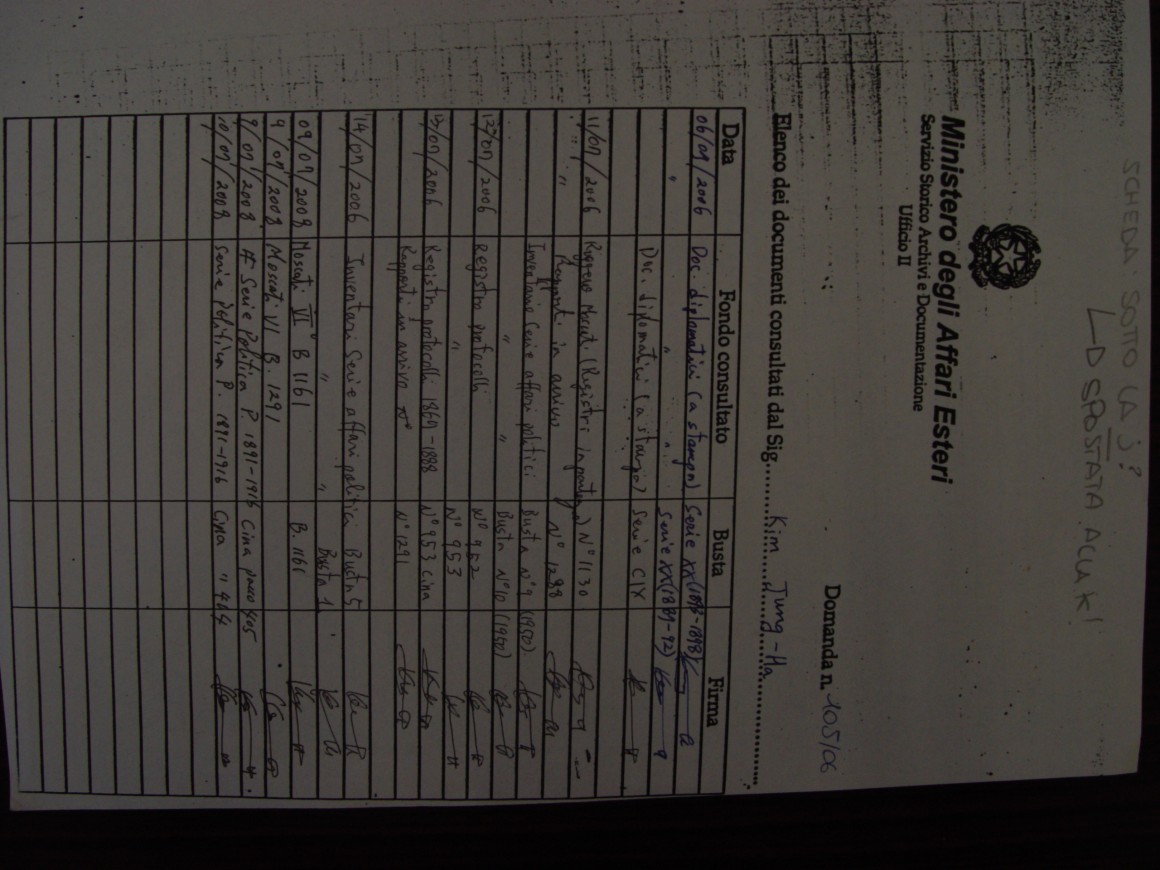 SCHEDA SOTTO LA J?
SPOSTATA ALLA K!
Ministero degli Affari Esteri
Servizio Storico Archivi e Documentazione
Ufficio II
Domanda n. 105/06
Elenco dei documenti consultati dal Sig. Kim Jung-Ha
Data Fondo consultato Busta Firma
06/07/2006 Doc. diplomatici (a stampa) Serie XX (1893-1898)
" " Serie XX (1889-92)
Doc. diplomatici (a stampa) Serie CIX
11/07/2006 (Registri in partenza) N° 1130
" Rapporti in arrivo N° 1288
Inventario Serie affari politici Busta N° 9 (1950)
" " Busta N° 10 (1950)
12/07/2006 Registro protocolli N° 952
" N° 953
13/07/2006 Registro protocolli 1869-1888 N° 953 Cina
Rapporti in arrivo N° N° 1291
14/07/2006 Inventari Serie affari politici Busta 5
" " Busta 1
09/07/2008 Moscati VI B 1161 B. 1161
9/07/2008 Moscati VI B. 1291
9/07/2008 Serie Politica P. 1891-1916 Cina pacco 405
10/07/2008 Serie politica P. 1891-1916 Cina " 404